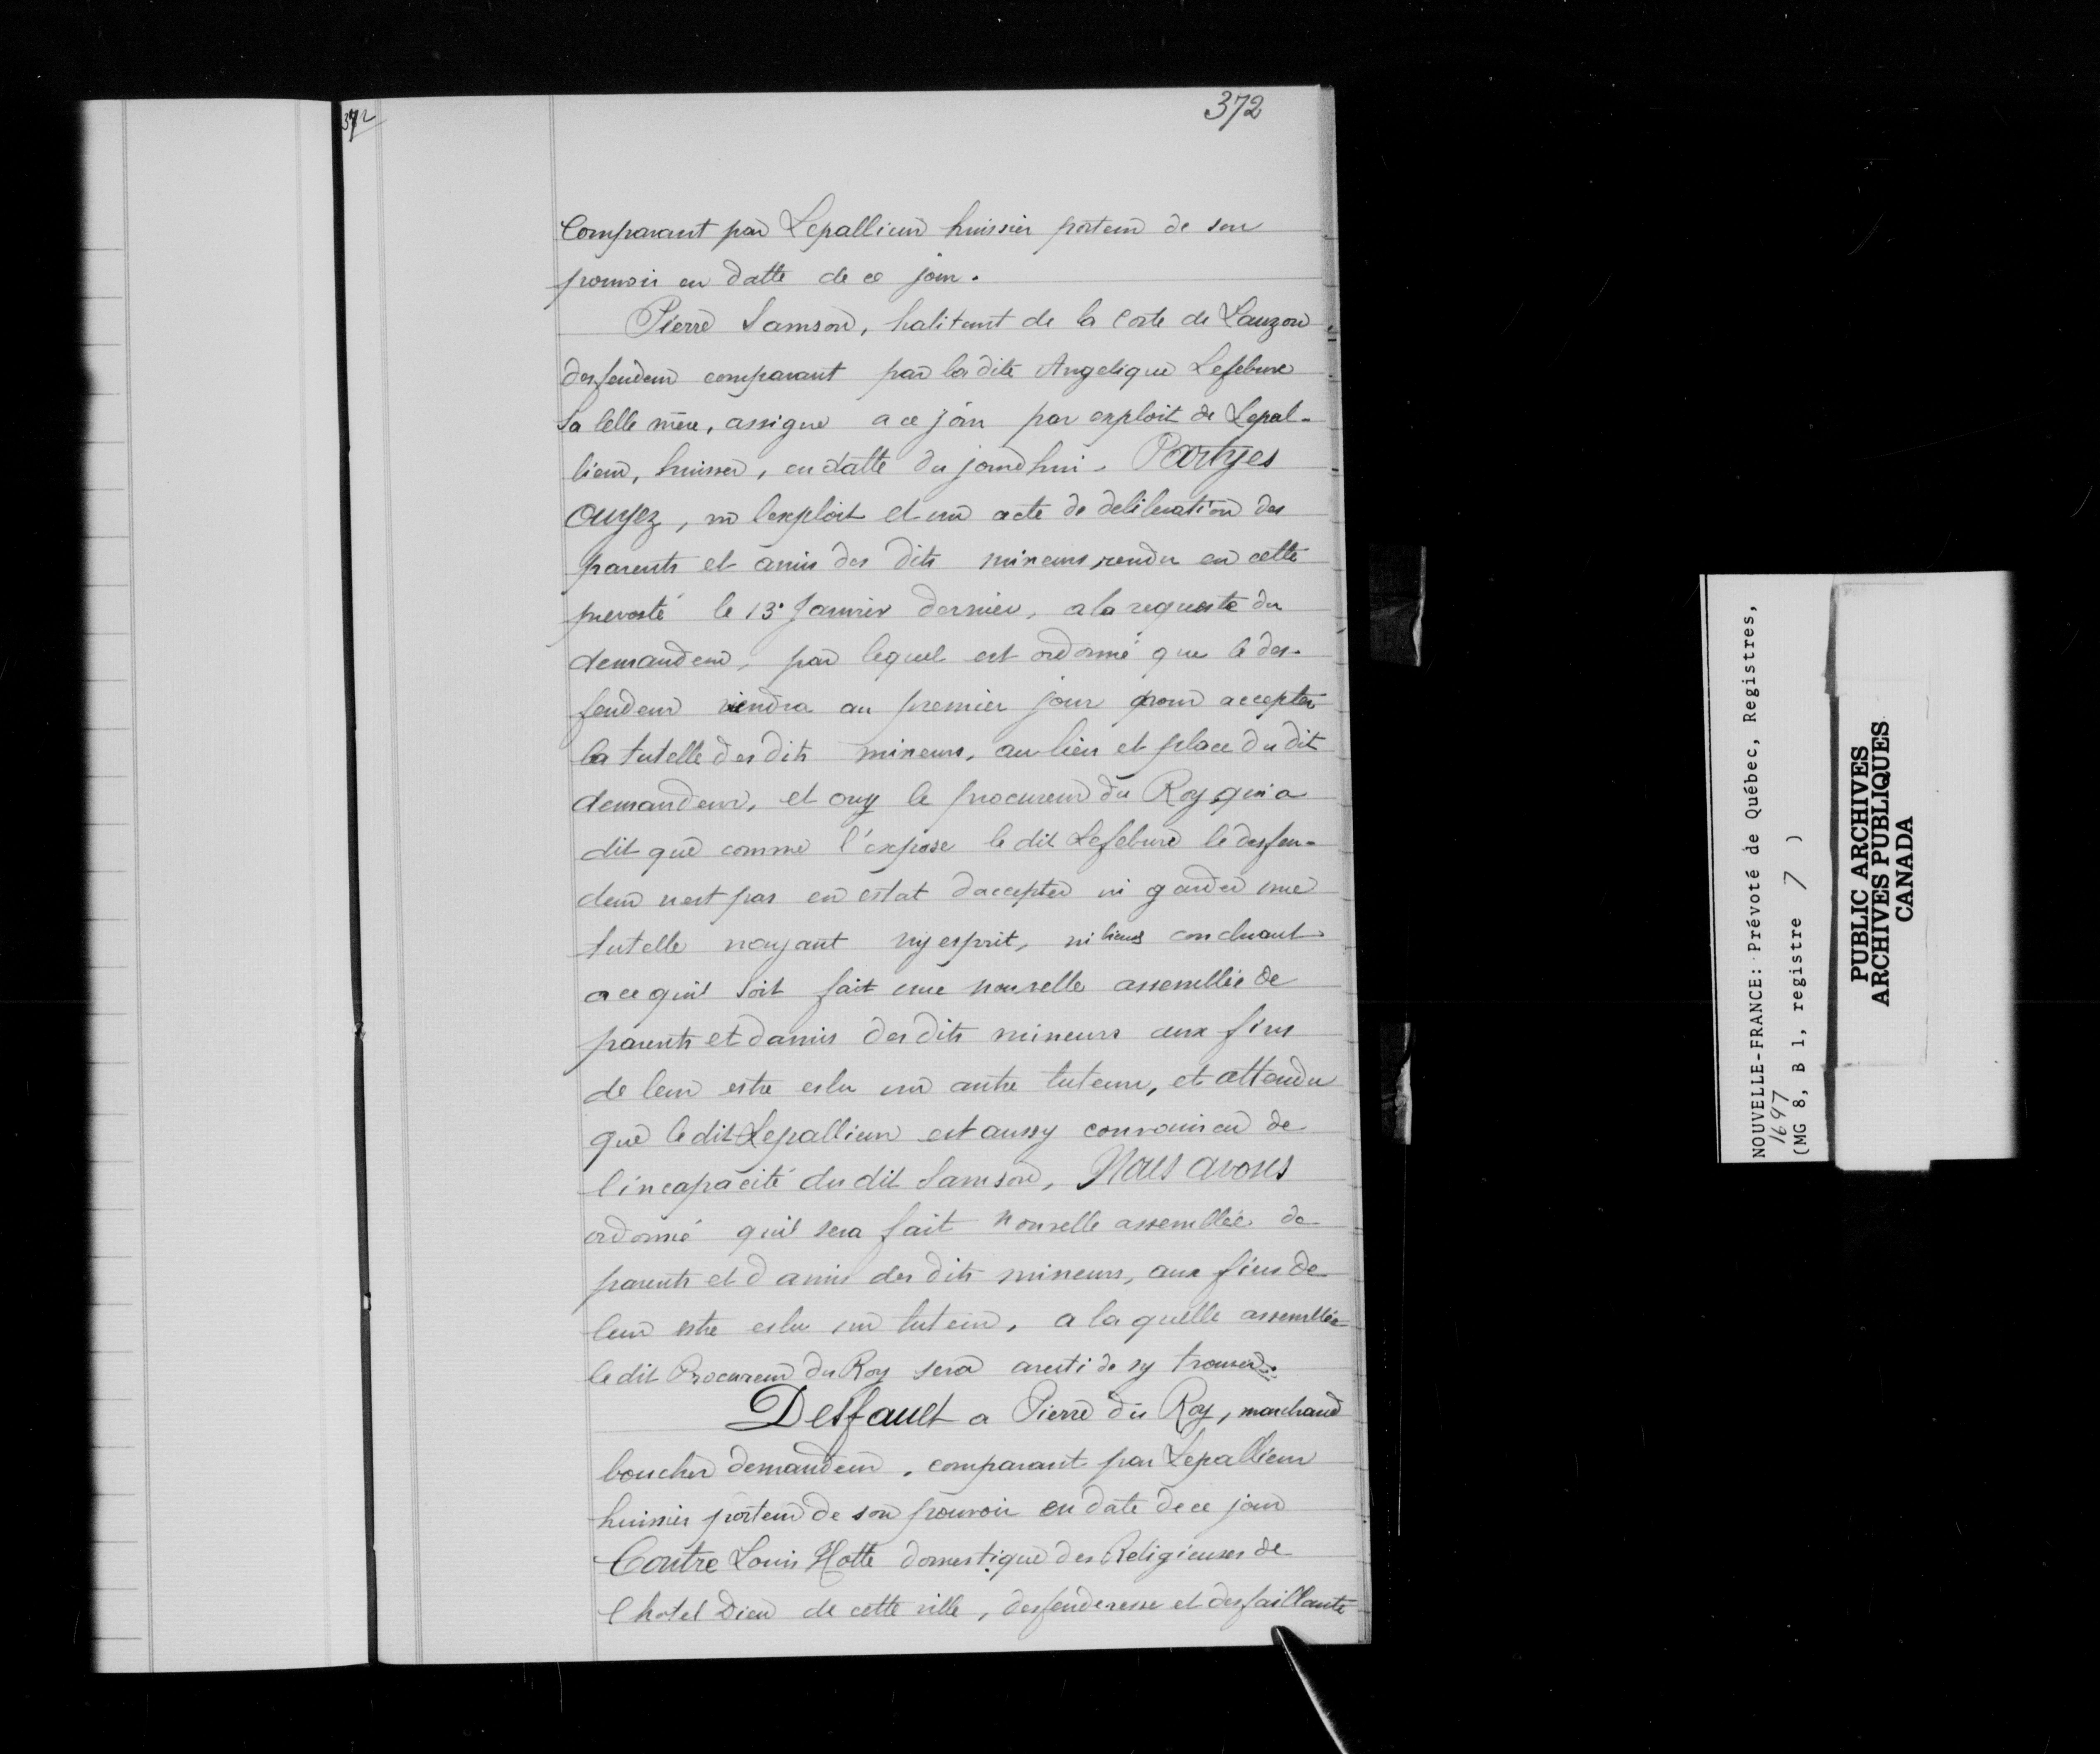 372
372
Comparant par Lepallieur huissier porteur de son
pouvoir en datte de ce jour.
Pierre Samson, habitant de la Coste de Lauzon
desfendeur comparant par la dite Angelique Lefebure
sa belle mere, assigné a ce jour par exploit de Lepal-
lieur, huissier, en datte du jourdhui. Partyes
Ouyez, vu lexploit et un acte de deliberation des
parents et amis des dits mineurs, rendu en cette
prevosté le 13e Janvier dernier, a la requeste du
demandeur, par lequel est ordonné que le des-
fendeur viendra au premier jour pour accepter
la tutelle des dits mineurs, au lieu et place du dit
demandeur, et ouy le procureur du Roy qui a
dit que comme l'expose le dit Lefebure le desfen-
deur nest pas en estat daccepter ni garder une
tutelle nayant ny esprit, ni biens concluant
a ce quil soit fait une nouvelle assemblée de
parents et damis des dits mineurs aux fins
de leur estre eslu un autre tuteur, et attendu
que le dit Lepallieur est aussy convaincu de
l'incapacité du dit Samson, Nous avons
ordonné quil sera fait nouvelle assemblée de
parents et d amis des dits mineurs, aux fins de
leur estre eslu un tuteur, a laquelle assemblée
le dit Procureur du Roy sera averti de sy trouver.
Desfault a Pierre du Roy, marchand
boucher demandeur, comparant par Lepallieur
huissier porteur de son pouvoir en date de ce jour
Contre Louis Hotte domestique des Religieuses de
l hotel Dieu de cette ville, desfenderesse et desfaillante
NOUVELLE-FRANCE: Prévoté de Québec, Registres,
1697
(MG 8, B 1, registre 7 )
PUBLIC ARCHIVES
ARCHIVES PUBLIQUES
CANADA